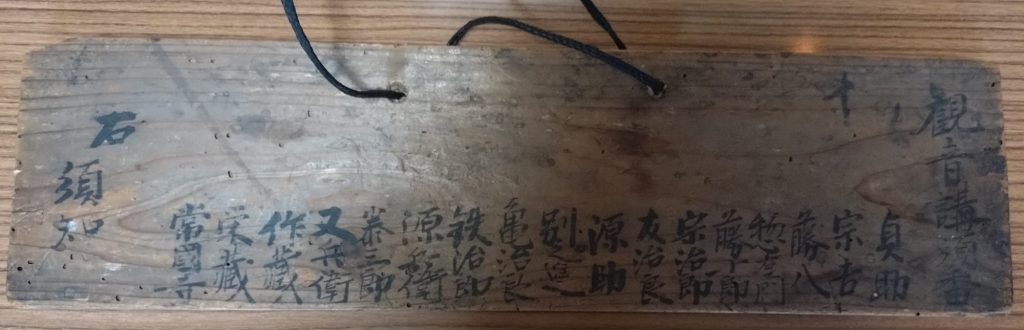 観音講順番
貞助
宗吉
藤八
惣左衛門
藤十郎
宗治郎
友治良
源助
亀治良
鉄治郎
源兵衛
泰三郎
又兵衛
作藏
栄藏
常國寺
右
須知